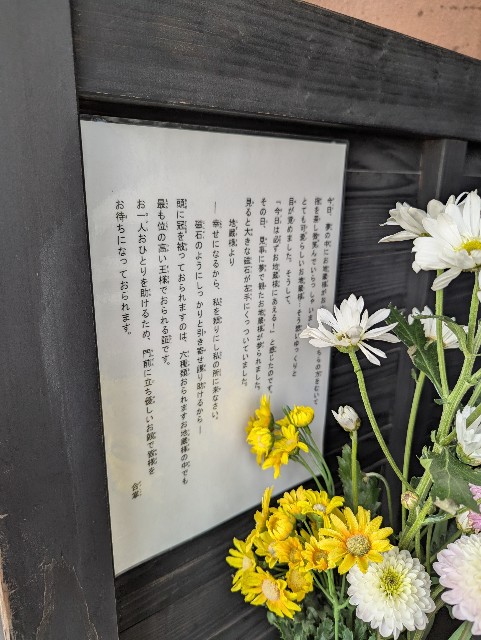 今日、夢の中にお地蔵様が
指を差し微笑んでいらっしゃい
とても可愛らしいお地蔵様
目が覚めました。そうして、
「今日は必ずお地蔵様にあえる！」と感じたのです。
その日、見事に夢で観たお地蔵様が参られました。
見ると大きな磁石が左手にくっついていました。
地蔵様より
―幸せになるから、私を頼りにし私の所に来なさい。
磁石のようにしっかりと引き寄せ護り助けるから―
頭に冠を被っておられますのは、六種類おられますお地蔵様の中でも
最も位の高い王様でおられる証です。
お一人おひとりを助けるため、門前に立ち優しいお顔で皆様を
お待ちになっておられます。
合掌